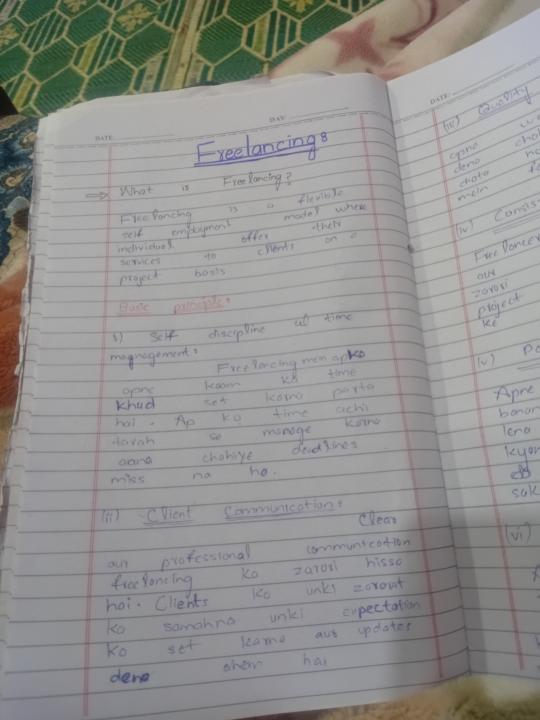 DATE:
DAY:
Freelancing:
What is Freelancing?
Freelancing is a flexible
self employment model where
individual offer their
services to clients on a
project basis
Basic principle:
i) Self discipline time
magnagement:
Freelancing men apko
apne kaam ka time
khud set karna parta
hai. Ap ko time achi
tarah se manage karna
chahiye deadlines
miss na ho.
(ii) Client Communication:
Clear
aur professional communication
freelancing ka zarori hisso
hai. Clients ko unki zarorat
ko samahna unki expectation
ko set karna aur updates
dena ahem hai
DATE:
(iii) Quality
apne
dena
chota
mein
iv) Consis
Freelancer
aur
zarori
project
ke
Apne
banan
lena
kyon
sak
vi)